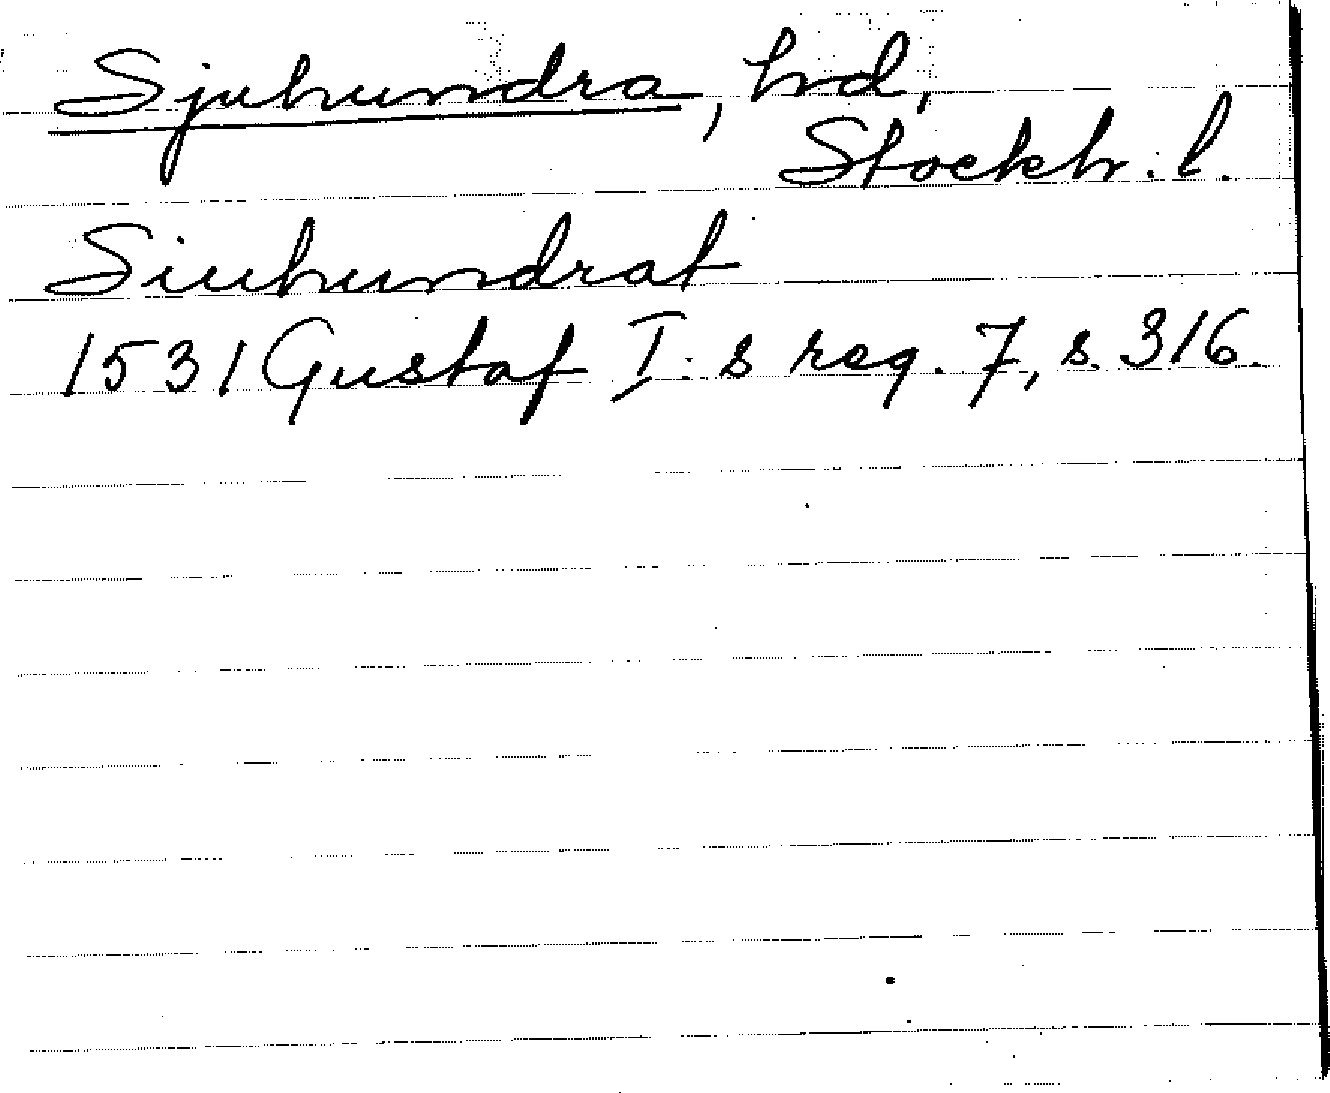 Sjuhundra, hd,
Stockh. l.
Siuhundrat
1531 Gustaf I:s reg. 7, s. 316.